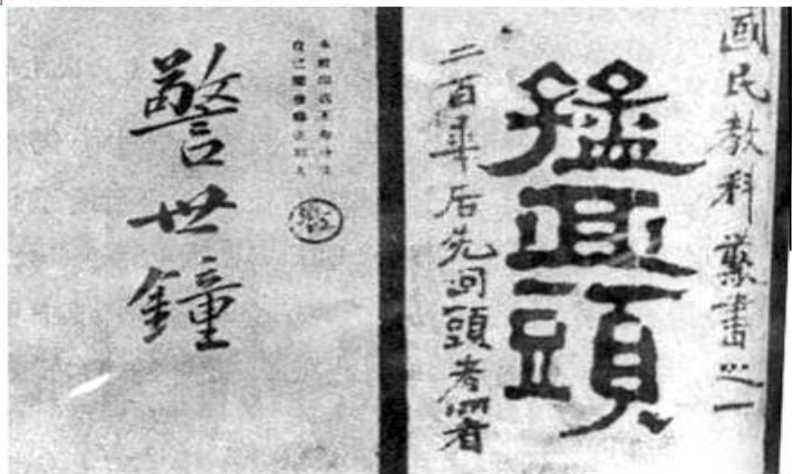 國民教科叢書之一
猛回頭
二百年后先回頭者著
警世鐘